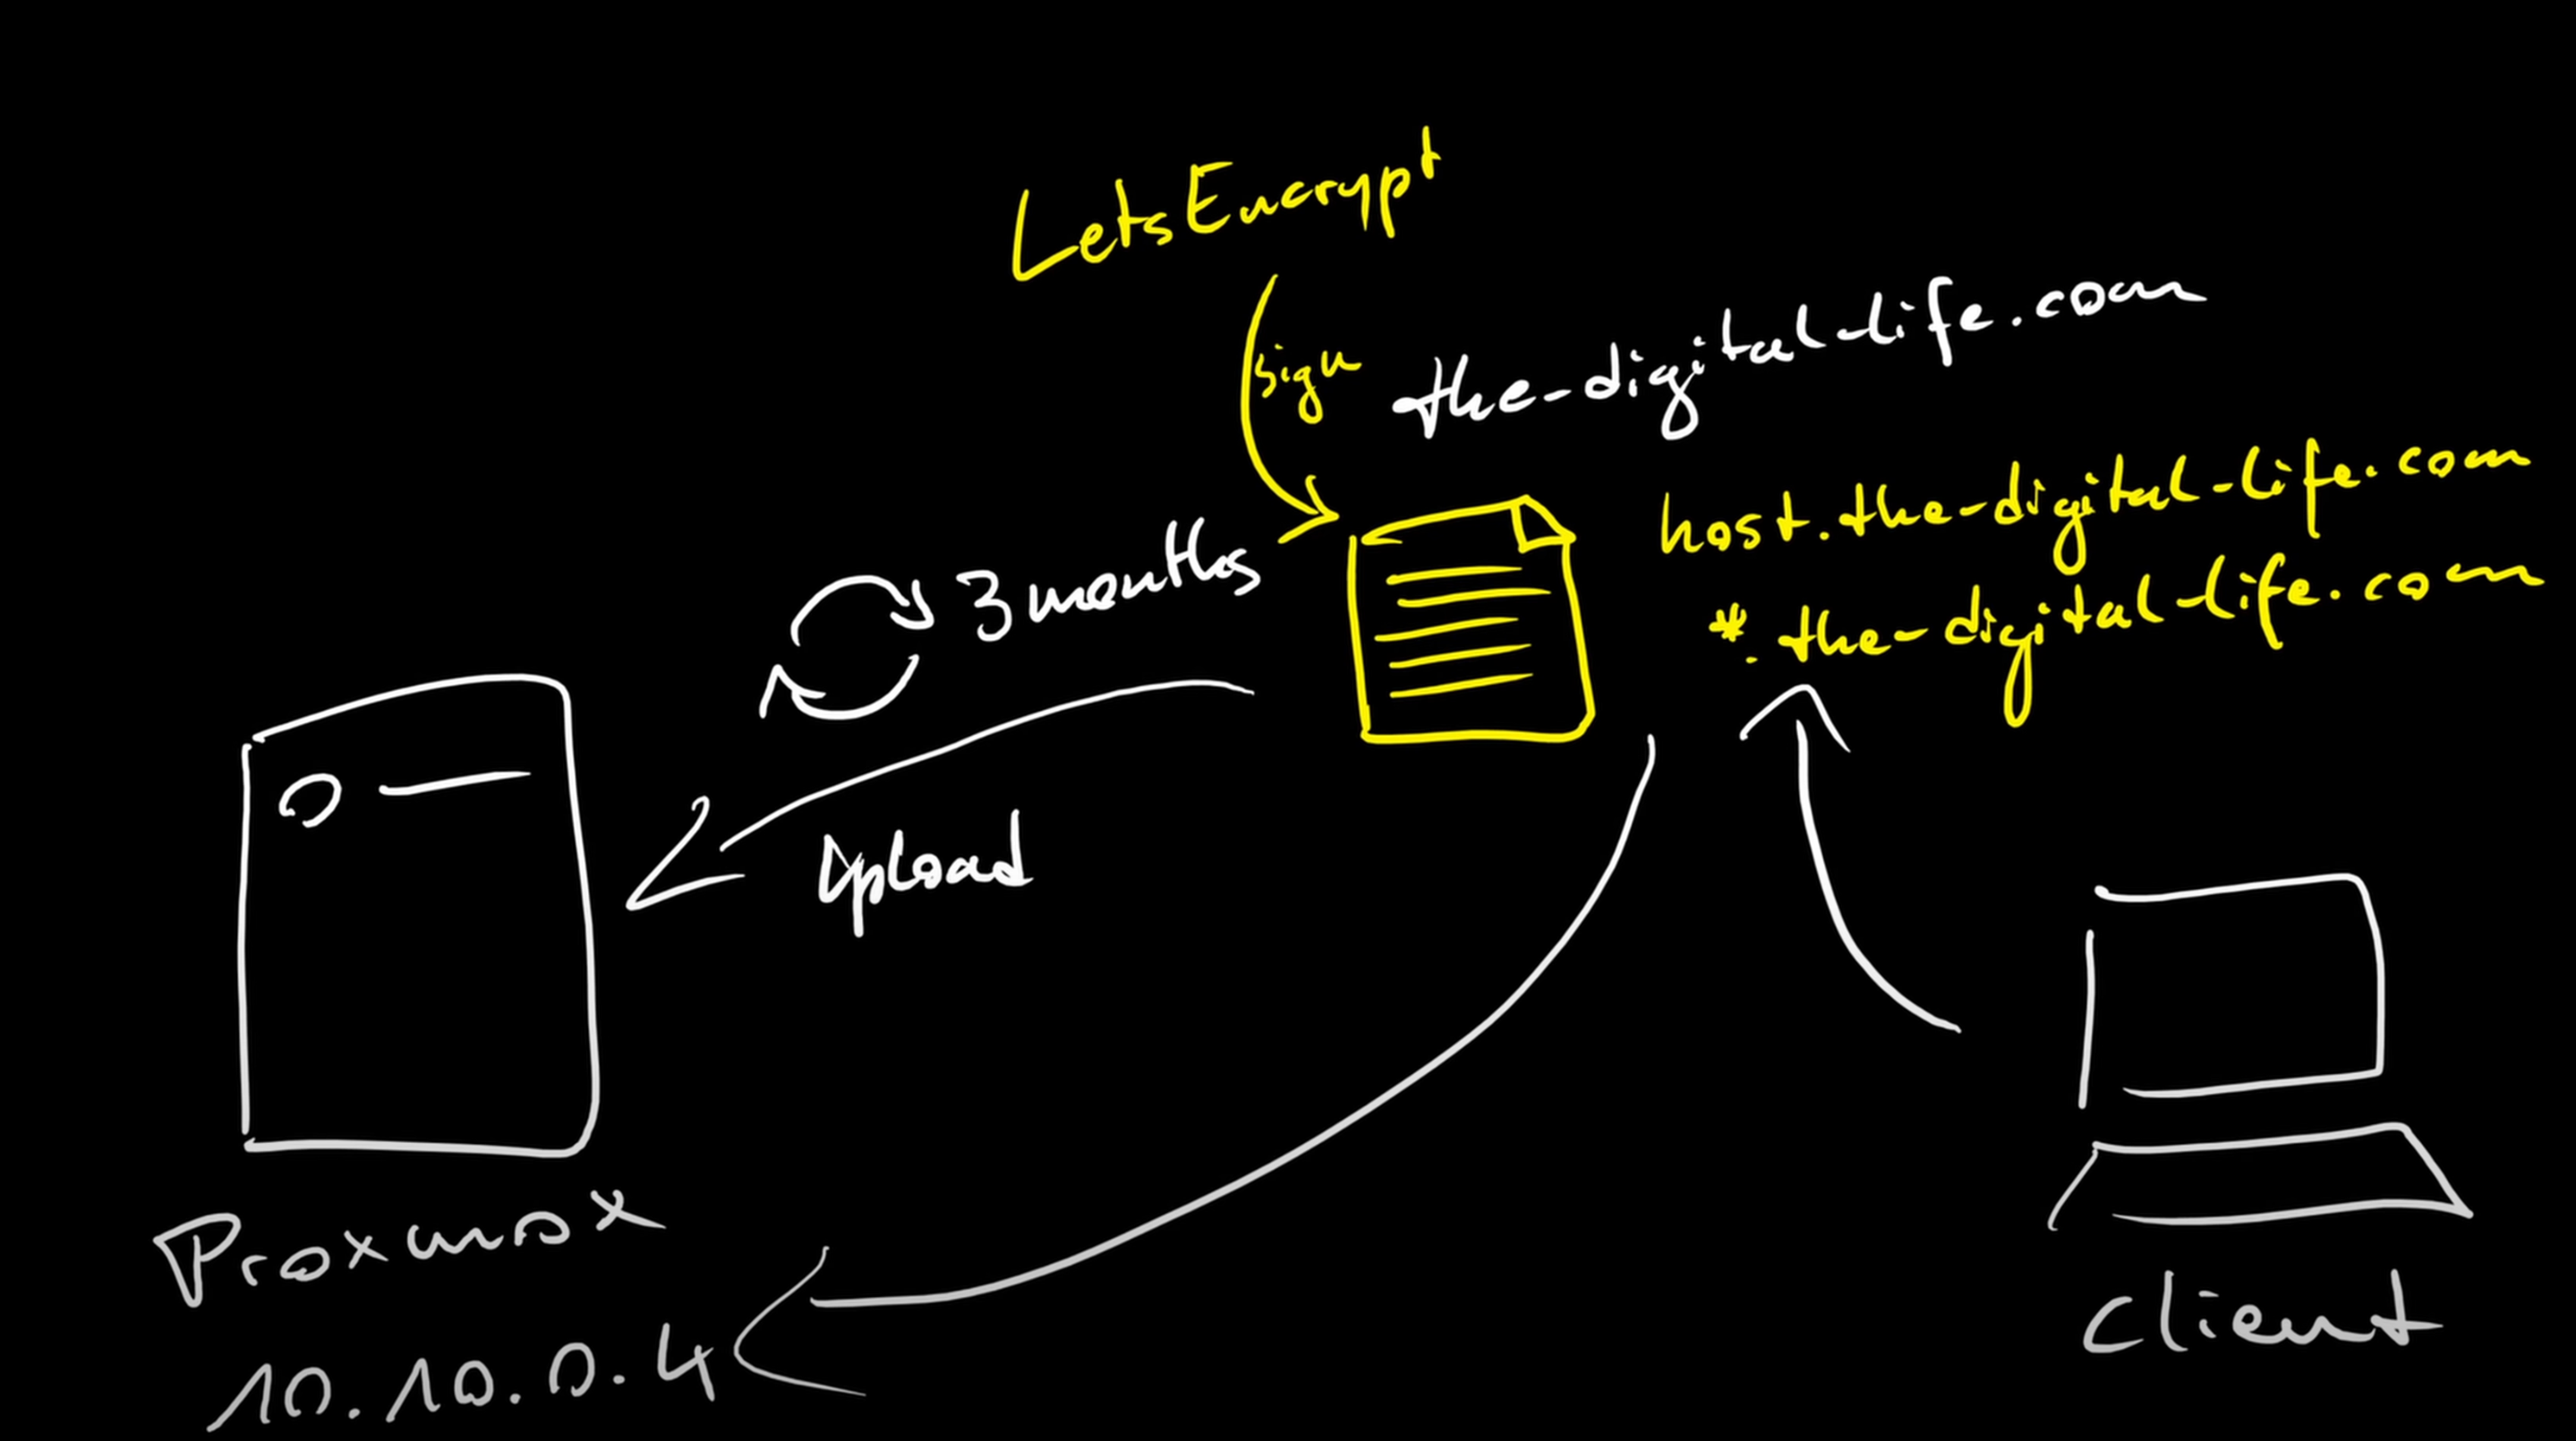 LetsEncrypt
sign
the-digital-life.com
host.the-digital-life.com
*.the-digital-life.com
3 months
Upload
Proxmox
10.10.0.4
Client